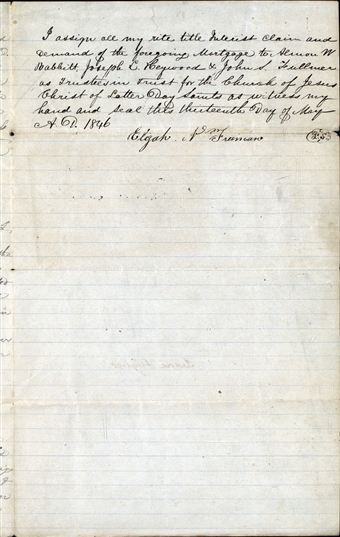 I assign all my rite title Interist claim and
demand of the foregoing Mortgage to Almon W
Babbitt, Joseph E. Heywood & John S. Fullmer
as Trustees in Trust for the Church of Jesus
Christ of Latter Day Saints as witness my
hand and seal this thirteenth Day of May
A. D. 1846
Elijah N. Freeman